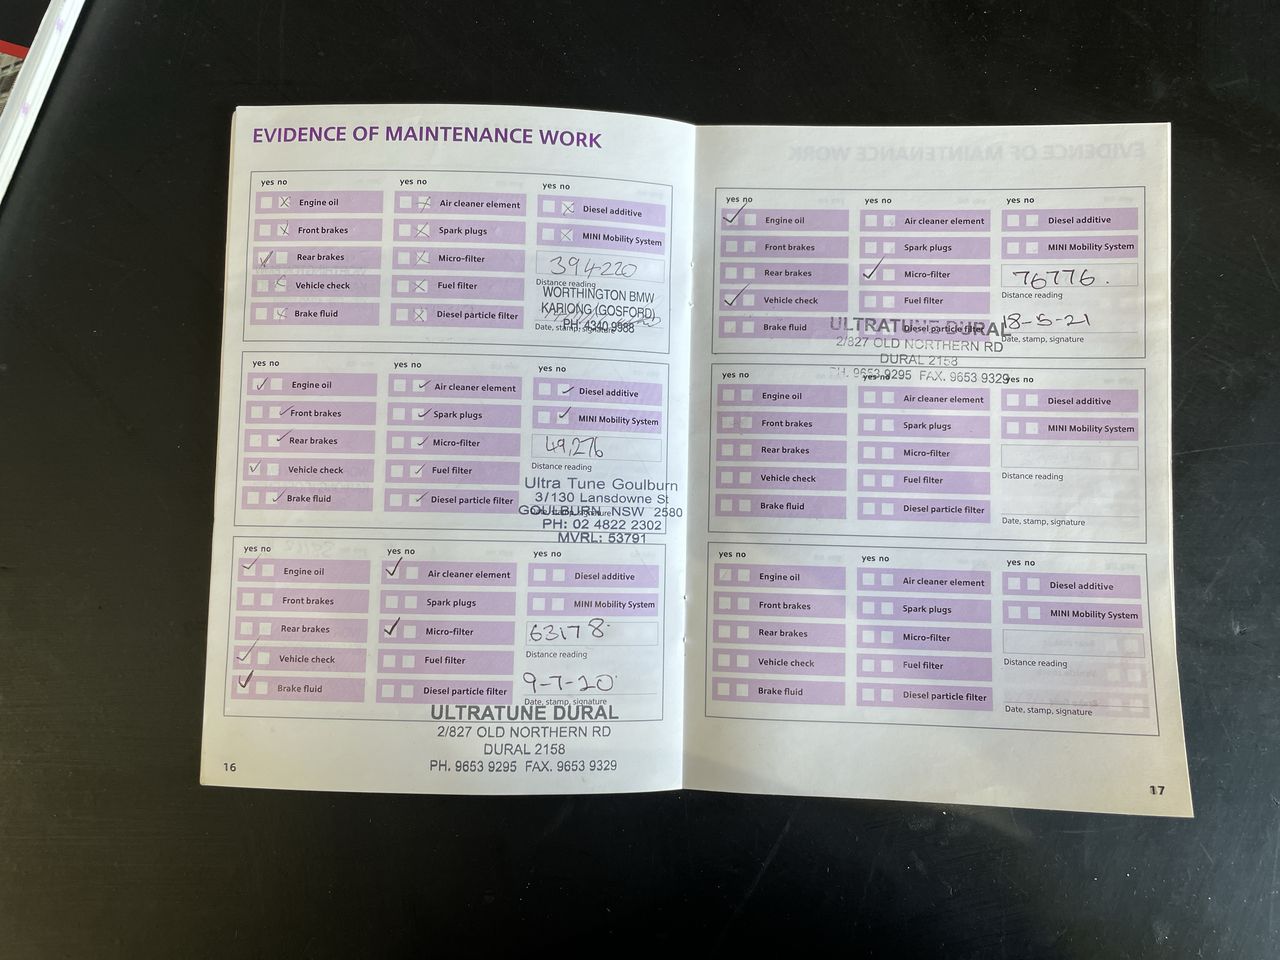 EVIDENCE OF MAINTENANCE WORK
yes no
Engine oil
Front brakes
Rear brakes
Vehicle check
Brake fluid
yes no
Air cleaner element
Spark plugs
Micro-filter
Fuel filter
Diesel particle filter
yes no
Diesel additive
MINI Mobility System
394220
Distance reading
WORTHINGTON BMW
KARIONG (GOSFORD)
PH: 4340 9988
Date, stamp, signature
yes no
Engine oil
Front brakes
Rear brakes
Vehicle check
Brake fluid
yes no
Air cleaner element
Spark plugs
Micro-filter
Fuel filter
Diesel particle filter
yes no
Diesel additive
MINI Mobility System
49,276
Distance reading
Ultra Tune Goulburn
3/130 Lansdowne St
GOULBURN NSW 2580
Date, stamp, signature
PH: 02 4822 2302
MVRL: 53791
yes no
Engine oil
Front brakes
Rear brakes
Vehicle check
Brake fluid
yes no
Air cleaner element
Spark plugs
Micro-filter
Fuel filter
Diesel particle filter
yes no
Diesel additive
MINI Mobility System
63178
Distance reading
9-7-20
Date, stamp, signature
ULTRATUNE DURAL
2/827 OLD NORTHERN RD
DURAL 2158
PH. 9653 9295 FAX. 9653 9329
16
yes no
Engine oil
Front brakes
Rear brakes
Vehicle check
Brake fluid
yes no
Air cleaner element
Spark plugs
Micro-filter
Fuel filter
Diesel particle filter
yes no
Diesel additive
MINI Mobility System
76776.
Distance reading
18-5-21
Date, stamp, signature
ULTRATUNE DURAL
2/827 OLD NORTHERN RD
DURAL 2158
PH. 9653 9295 FAX. 9653 9329
yes no
Engine oil
Front brakes
Rear brakes
Vehicle check
Brake fluid
yes no
Air cleaner element
Spark plugs
Micro-filter
Fuel filter
Diesel particle filter
yes no
Diesel additive
MINI Mobility System
Distance reading
Date, stamp, signature
yes no
Engine oil
Front brakes
Rear brakes
Vehicle check
Brake fluid
yes no
Air cleaner element
Spark plugs
Micro-filter
Fuel filter
Diesel particle filter
yes no
Diesel additive
MINI Mobility System
Distance reading
Date, stamp, signature
17